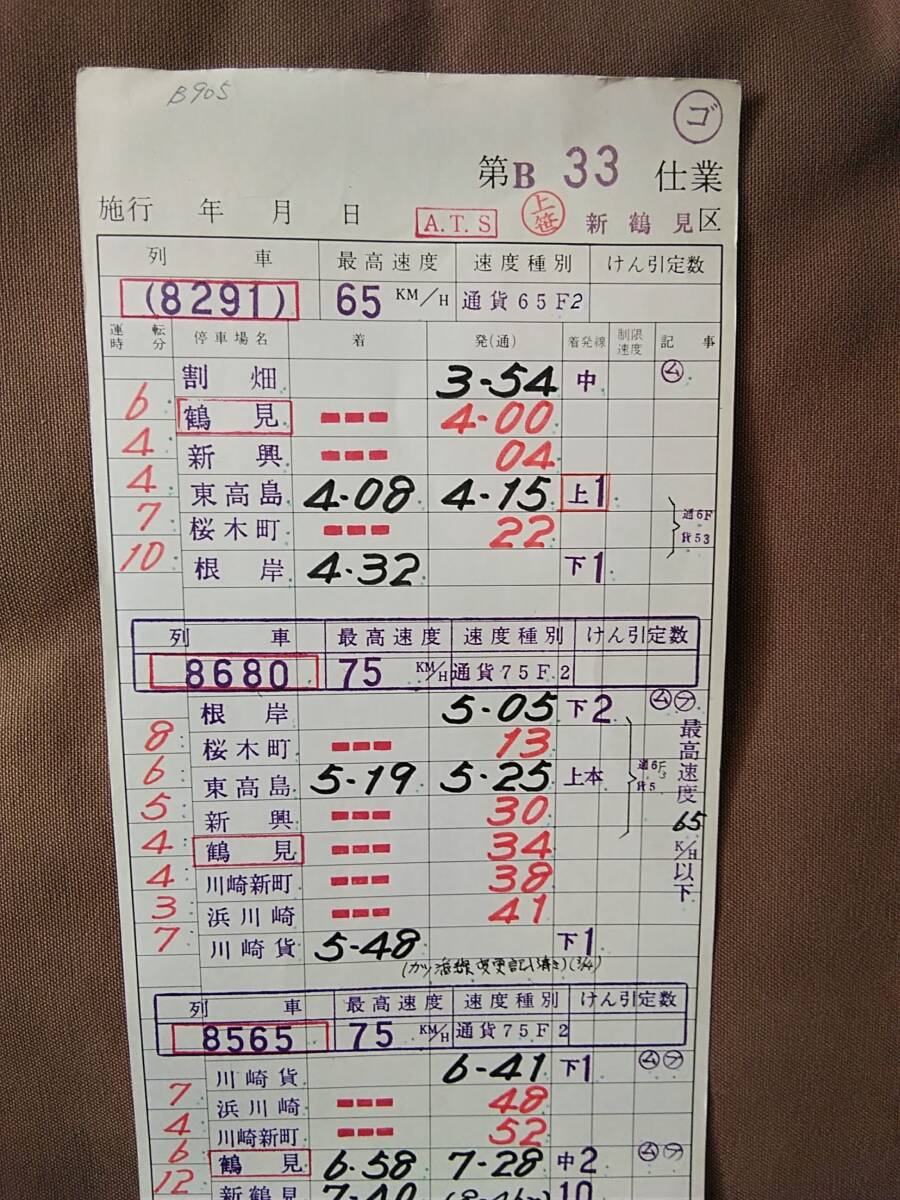 B905
ゴ
第B 33 仕業
施行 年 月 日 A.T.S 上笹 新鶴見区
列車 最高速度 速度種別 けん引定数
(8291) 65 KM/H 通貨65F2
運転時分 停車場名 着 発(通) 着発線 制限速度 記事
割畑 3-54 中 ㋰
6
鶴見 --- 4-00
4
新興 --- 04
4
東高島 4-08 4-15 上1
7
桜木町 --- 22
通6F
貨53
10
根岸 4-32 下1
列車 最高速度 速度種別 けん引定数
8680 75 KM/H 通貨75F2
根岸 5-05 下2 ㋰㋫
8
桜木町 --- 13
6
東高島 5-19 5-25 上本
通6F3
貨5
5
新興 --- 30
4
鶴見 --- 34
4
川崎新町 --- 38
3
浜川崎 --- 41
7
川崎貨 5-48 下1
最高速度65K/H以下
列車 最高速度 速度種別 けん引定数
8565 75 KM/H 通貨75F2
川崎貨 6-41 下1 ㋰㋫
7
浜川崎 --- 48
4
川崎新町 --- 52
6
鶴見 6-58 7-28 中2 ㋰㋫
12
新鶴見 7-40 10